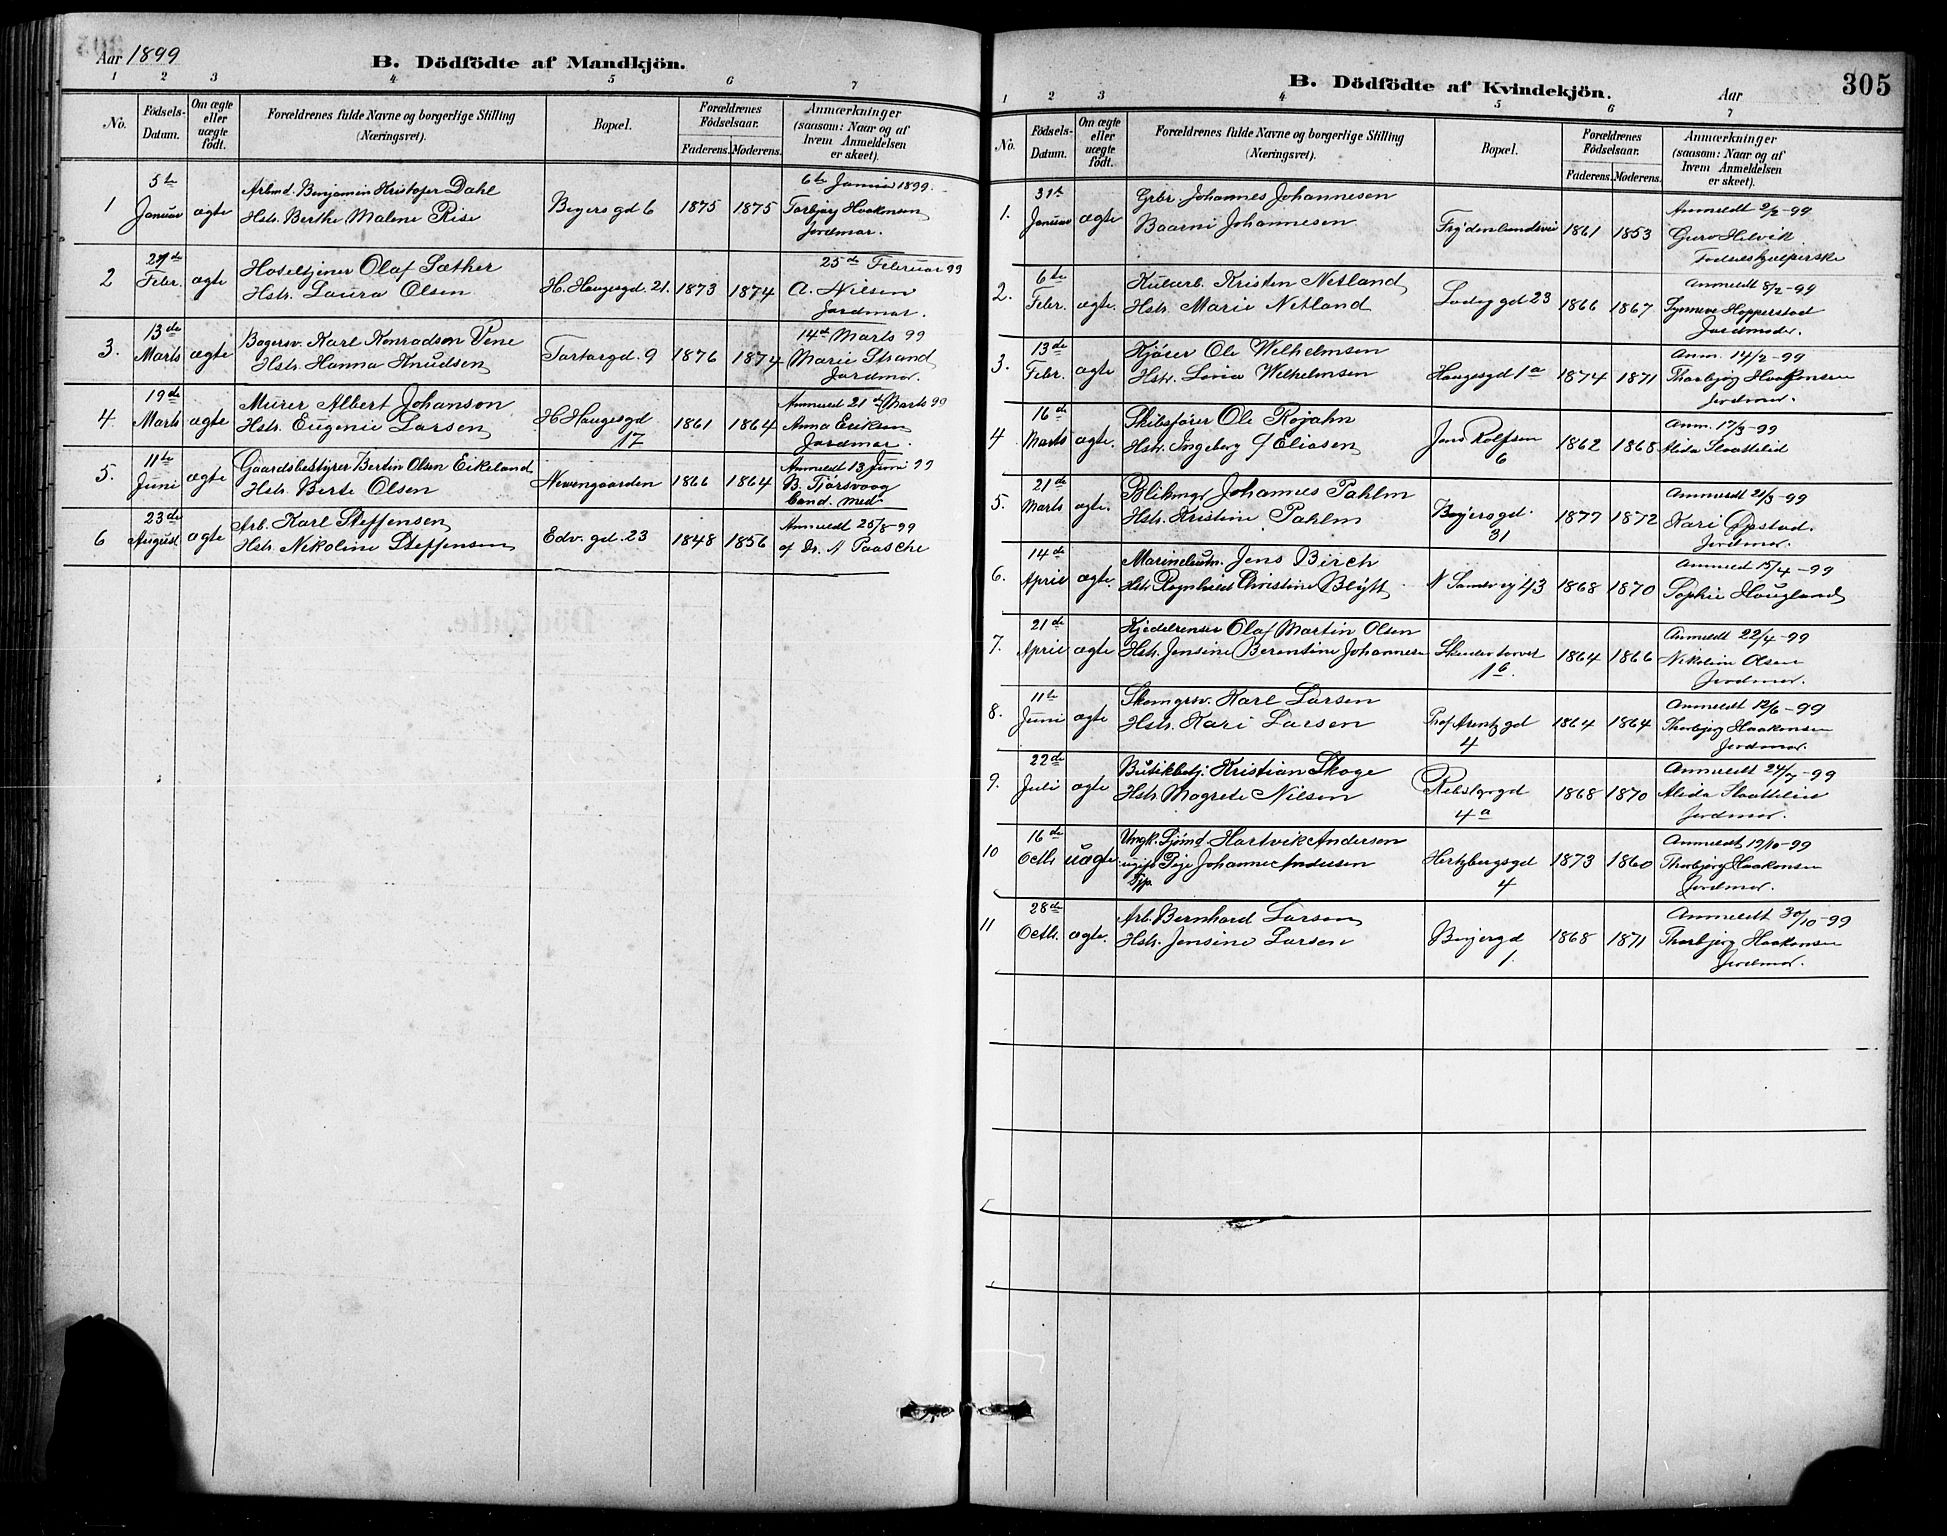 Aar 1899
B. Dödfödte af Mandkjön.
1 2 3 4 5 6 7
No.
Födsels-Datum.
Om ægte eller uægte födt.
Forældrenes fulde Navne og borgerlige Stilling (Næringsvet).
Bopæl.
Forældrenes Födselsaar.
Faderens. Moderens.
Anmærkninger (saasom: Naar og af hvem Anmeldelsen er skeet).
1 5te Januar ægte
Arbmd. Benjamin Kristofer Dahl
Hstr. Berthe Malene Rise
Beyersgd 6 1875 1875
6te Januar 1899.
Torbjørg Haakonsen
Jordmor.
2 24de Febr. ægte
Hoteltjener Olaf Sæther
Hstr. Laura Olsen
H. Haugesgd. 21. 1873 1874
25de Februar 99
A. Nilsen
Jordmor.
3. 13de Marts ægte
Bagersv. Karl Konradson Vene
Hstr. Hanna Knudsen
Tartargd. 9 1876 1874
14de Marts 99
Marie Strand
Jordmor.
4. 19de Marts ægte
Murer Albert Johanson
Hstr. Eugenie Larsen
H Haugesgd 17 1861 1864
Anmeldt 21de Marts 99
Anna Eriksen
Jordmor.
5. 11te Juni ægte
Gaardsbestyrer Bertin Olsen Eikeland
Hstr. Berte Olsen
Nevengaarden 1866 1864
Anmeldt 13 Juni 99
B. Tjørsvaag
Cand. med.
6 23de August ægte
Arb. Karl Steffensen
Hstr. Nikoline Steffensen
Edv. gd. 23 1848 1856
Anmeldt 25/8-99
af Dr. A Paasche
305
B. Dödfödte af Kvindekjön.
Aar
1 2 3 4 5 6 7
No.
Födsels-Datum.
Om ægte eller uægte födt.
Forældrenes fulde Navne og borgerlige Stilling (Næringsvet).
Bopæl.
Forældrenes Födselsaar.
Faderens. Moderens.
Anmærkninger (saasom: Naar og af hvem Anmeldelsen er skeet).
1. 31te Januar ægte
Grbr Johannes Johannesen
Baarni Johannesen
Frydenlundsvei 1861 1853
Anmeldt 2/2-99
Guro Helvik
fødselshjælperske
2. 6te Febr. ægte.
Kularb. Kristen Netland
Hstr. Marie Netland
Ladegd 23 1866 1867
Anmeldt 8/2-99
Synneve Hopperstad
Jordmoder.
3. 13de Febr. ægte
Kjører Ole Wilhelmsen
Hstr. Lovia Wilhelmsen
Haugesgd 1a 1874 1871
Anm. 14/2-99
Thorbjørg Haakonsen
Jordmor.
4 16de Marts ægte.
Skibsfører Ole Rojahn
Hstr. Ingeborg f Eliasen
Jens Rolfsen 6 1862 1868
Anm. 17/3-99
Alida Slaattelid
5. 21de Marts ægte.
Blikmgr Johannes Pahlm
Hstr. Kristine Pahlm
Beyersgd. 31 1877 1872
Anmeldt 21/3-99
Kari Opstad.
Jordmor.
6. 14de April ægte.
Marineløitn. Jens Birch
Hstr Ragnhild Christine Blytt
N Sandsveg 43 1868 1870
Anmeldt 15/4-99
Sophie Haugland
7. 21de April ægte
Kjedelrenser Olaf Martin Olsen
Hstr. Jensine Berentine Johannesen
Skudertorvet 1b. 1864 1866
Anmeldt 22/4-99
Nikoline Olsen
Jordmor.
8. 11te Juni ægte
Skomgrsv. Karl Larsen
Hstr. Kari Larsen
Prof Arentz gd 4 1864 1864
Anmeldt 12/6-99
Thorbjørg Haakonsen
Jordmor.
9. 22de Juli ægte
Butikbetj. Kristian Skage
Hstr. Magrete Nilsen
Rebslagergd 4a 1868 1870
Anmeldt 24/7-99
Alida Slaattelid
Jordmor.
10 16de Octbr uægte
Ungk. Sjømd. Hartvik Andersen
ugift Pige Johanne Andersen
Tjp.
Hertzbergsgd 4 1873 1860
Anmeldt 19/10-99
Thorbjørg Haakonsen
Jordmor.
11 28de Octbr. ægte.
Arb. Bernhard Larsen
Hstr. Jensine Larsen
Beyergd 1. 1868 1871
Anmeldt 30/10-99
Thorbjørg Haakonsen
Jordmor.